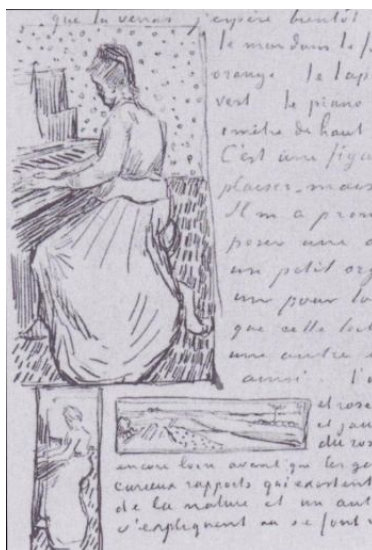 que tu verras j'espère bientôt
le mur dans le f
orange le tap
vert le piano
1 mètre de haut
C'est une figu
plaisir - mais
Il m'a prom
poser une a
un petit org
un pour to
que cette toile
une autre
ainsi. l'
et rose
et jau
du ros
encore loin avant que les ge
curieux rapports qui existent
de la nature et un aut
s'expliquent ou se font v